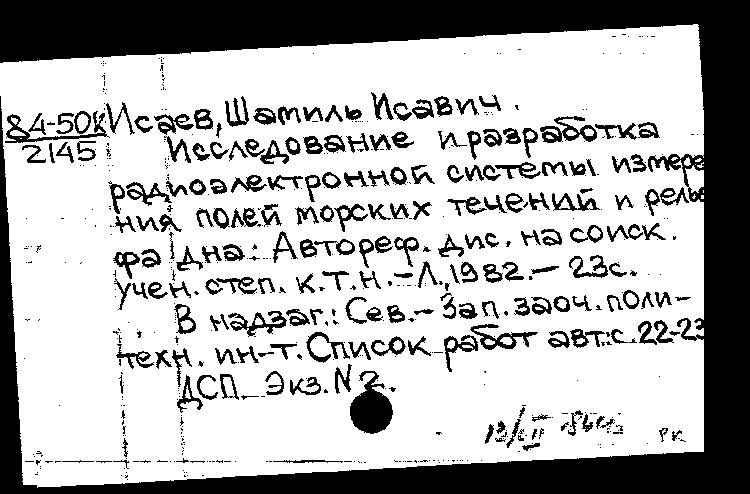 84-50К Исаев, Шамиль Исавич.
2145 Исследование и разработка
радиоэлектронной системы измере
ния полей морских течений и релье
фа дна: Автореф. дис. на соиск.
учен. степ. к.т.н. - Л., 1982. - 23с.
В надзаг.: Сев.-Зап. заоч. поли-
техн. ин-т. Список работ авт.: с. 22-23
ДСП. Экз. N 2.
РК